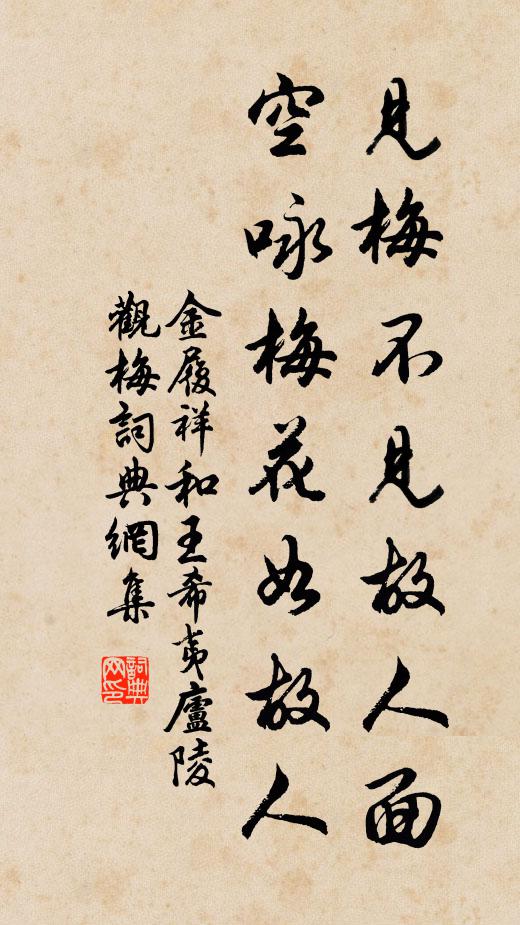 見梅不見故人面
空咏梅花如故人
金履祥和王希夷廬陵
觀梅詞典網集
詞典网印